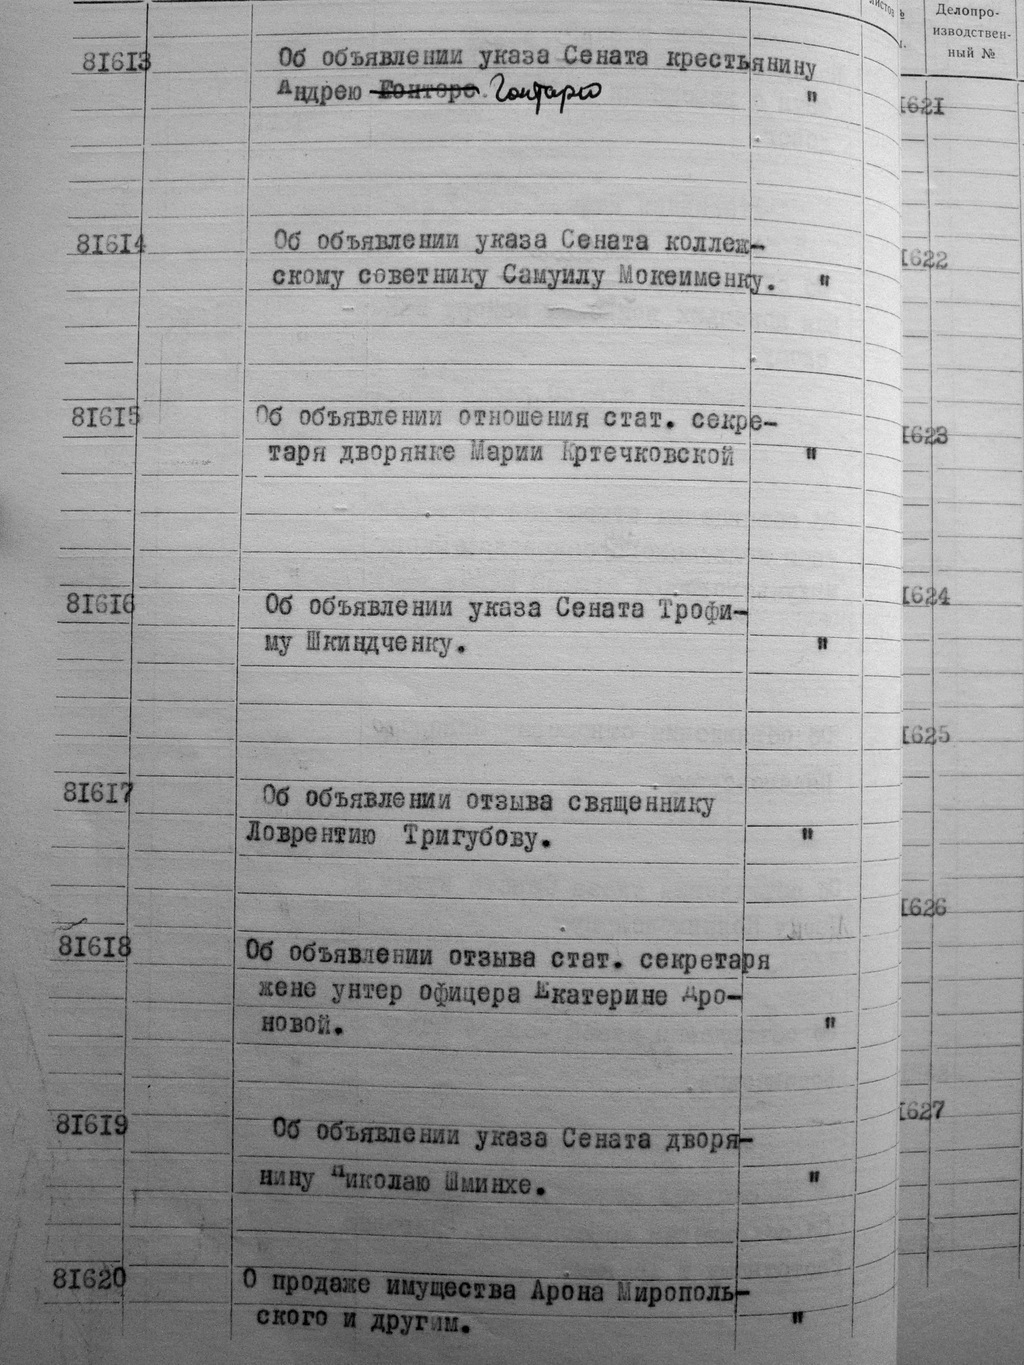 Делопро-
изводствен-
ный №
81613 Об объявлении указа Сената крестьянину
Андрею Гонторе Гонтарю "
81614 Об объявлении указа Сената коллеж-
скому советнику Самуилу Мокеименку. "
81615 Об объявлении отношения стат. секре-
таря дворянке Марии Кртечковской "
81616 Об объявлении указа Сената Трофи-
му Шкиндченку. "
81617 Об объявлении отзыва священнику
Ловрентию Тригубову. "
81618 Об объявлении отзыва стат. секретаря
жене унтер офицера Екатерине Дро-
новой. "
81619 Об объявлении указа Сената дворя-
нину Николаю Шминхе. "
81620 О продаже имущества Арона Мирополь-
ского и другим. "
1621
1622
1623
1624
1625
1626
1627